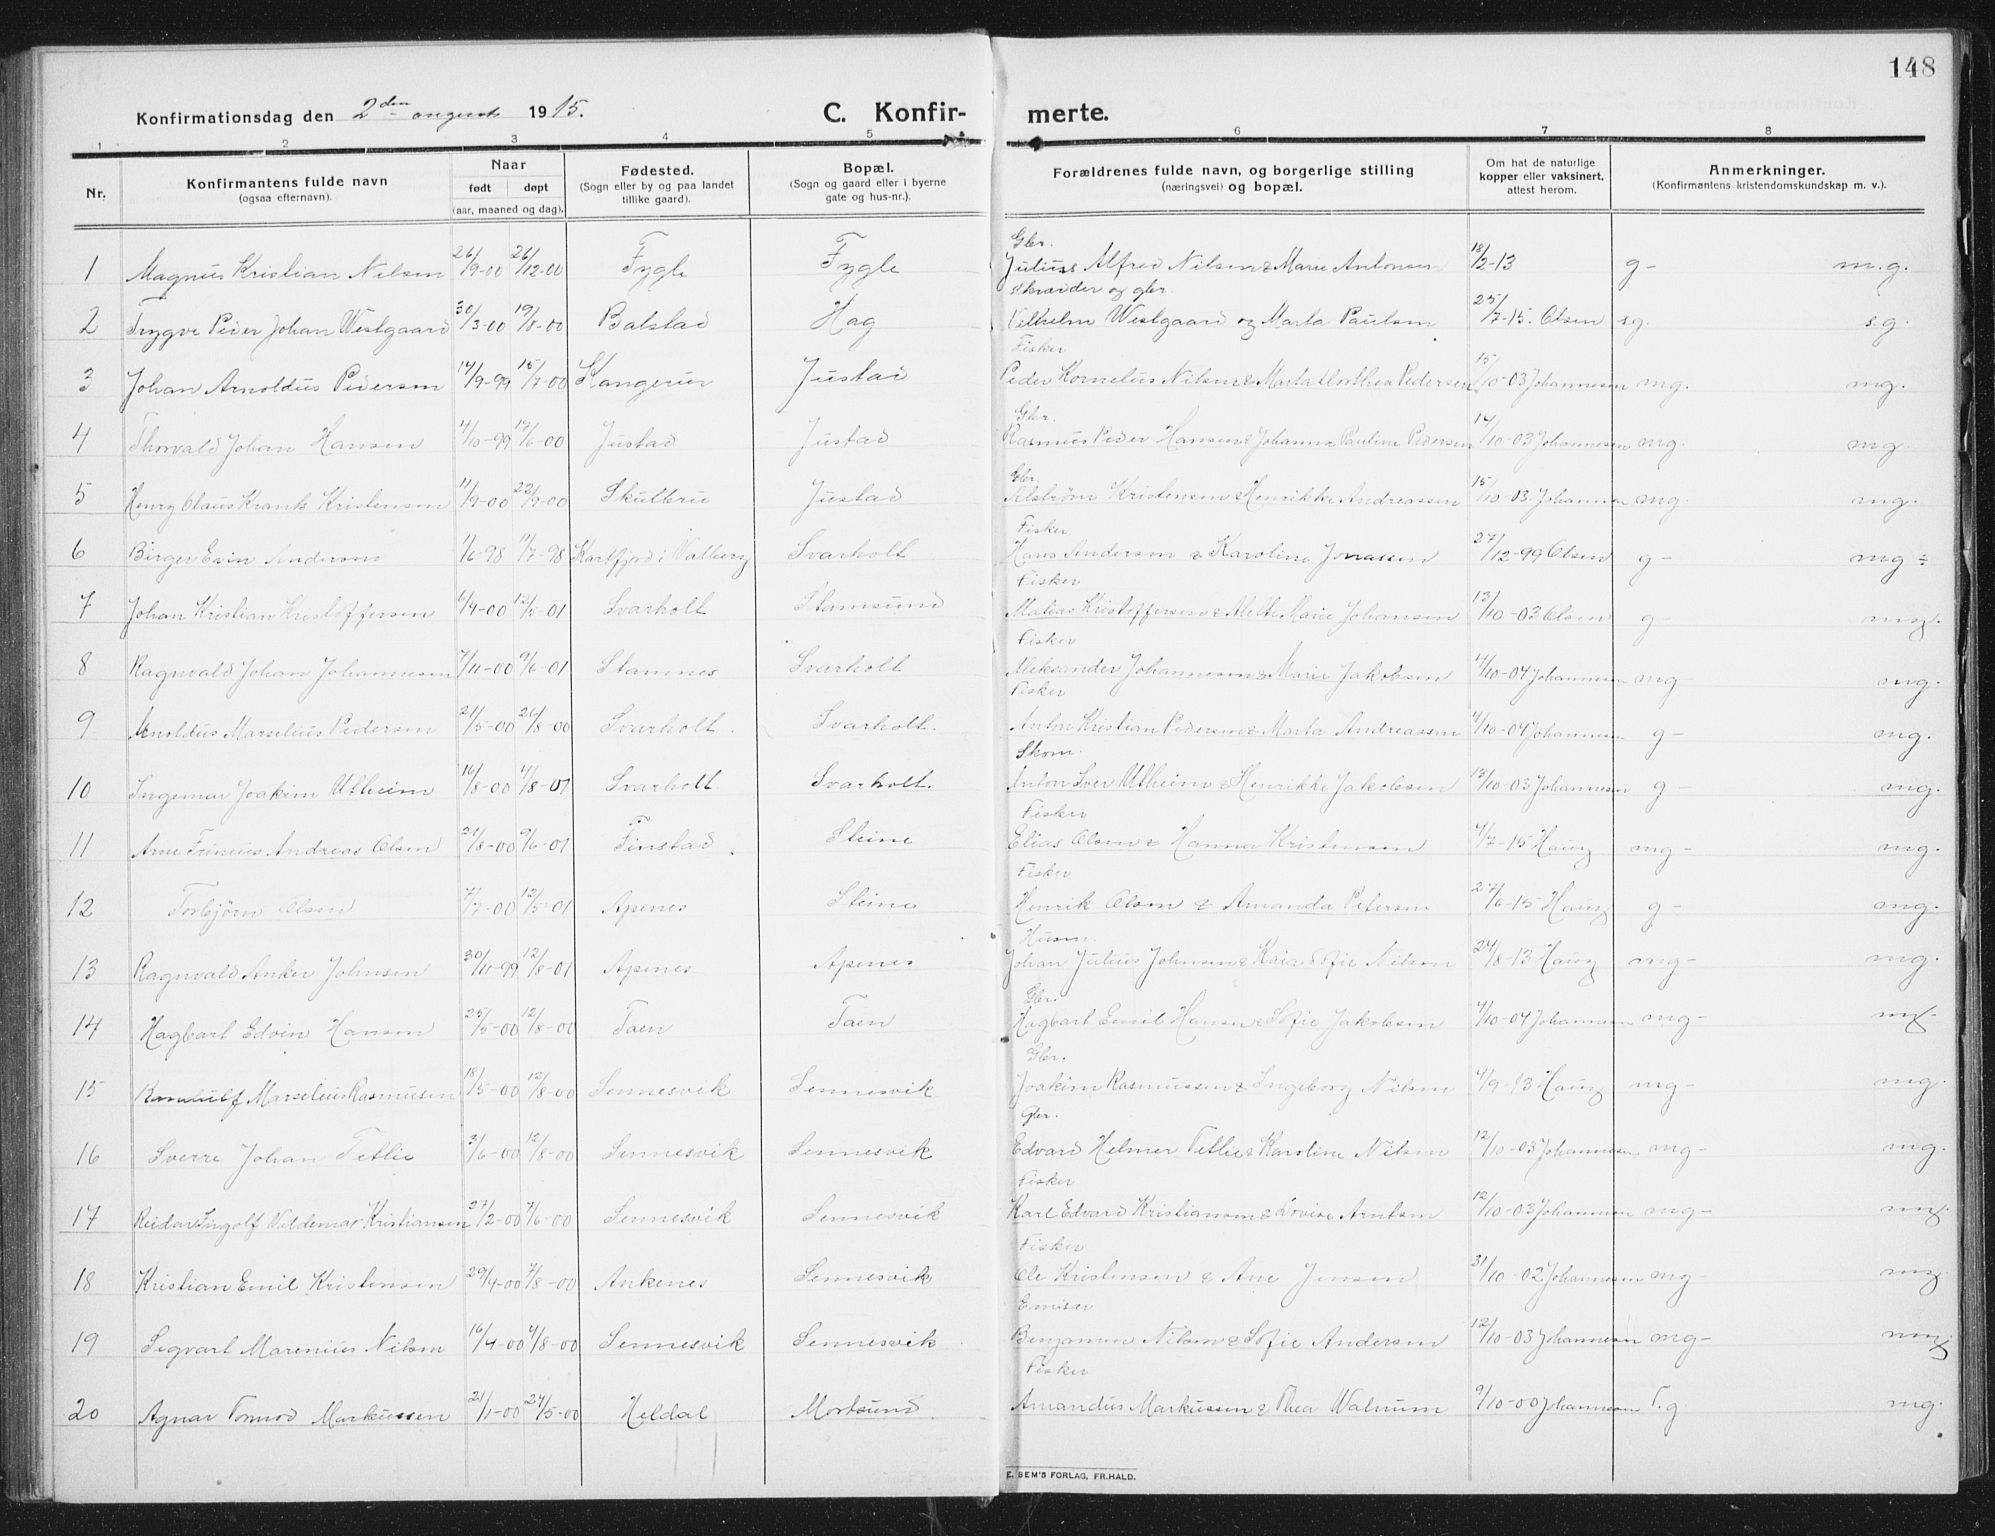 148
Konfirmationsdag den 2den august 1915. C. Konfir- merte.
1 2 3 4 5 6 7 8
Nr. Konfirmantens fulde navn (ogsaa efternavn). Naar født døpt (aar, maaned og dag). Fødested. (Sogn eller by og paa landet tillike gaard). Bopæl. (Sogn og gaard eller i byerne gate og hus-nr.). Forældrenes fulde navn, og borgerlige stilling (næringsvei) og bopæl. Om hat de naturlige kopper eller vaksinert, attest herom. Anmerkninger. (Konfirmantens kristendomskundskap m. v.).
Gbr.
1 Magnus Kristian Nilsen 26/9-00 26/12-00 Fygle Fygle Julius Alfred Nilsen & Marie Antonsen 18/2-13 g- m.g.
Skrædder og gbr.
2 Trygve Peder Johan Westgaard 30/3-00 19/8-00 Balstad Hag Vilhelm Westgaard og Marta Paulsen 25/7-15. Olsen s.g. s.g.
Fisker
3 Johan Arnoldus Pedersen 14/9-99 15/7-00 Skangerur Justad Peder Kornelius Nilsen & Marta Dorthea Pedersen 15/10-03 Johannesen mg. mg.
Gbr.
4 Thorvald Johan Hansen 4/10-99 17/6-00 Justad Justad Rasmus Peder Hansen & Johanna Pauline Pedersen 14/10-03 Johannesen mg. mg.
Gbr.
5 Henry Claus Krants Kristensen 11/9-00 23/9-00 Skulbru Justad Alstrøm Kristensen & Henrikke Andreassen 15/10-03. Johannesen mg. mg.
Fisker
6 Birger Evin Andersen 1/6-98 11/7-98 Kartfjord i Valberg Svarholt Hans Andersen & Karoline Jonassen 27/12-99 Olsen g- mg ÷
Fisker
7 Johan Kristian Kristoffersen 6/4-00 12/5-01 Svarholt Stamsund Matias Kristoffersen & Mette Marie Johansen 13/10-03 Olsen g- mg.
Fisker
8 Ragnvald Johan Johannesen 7/11-00 9/6-01 Stamnes Svarholt Aleksander Johannesen & Marie Jakobsen 4/10-04 Johannesen mg- mg.
Fisker
9 Arnoldus Marselius Pedersen 21/5-00 26/8-00 Svarholt. Svarholt. Anton Kristian Pedersen & Marta Andreassen 4/10-04 Johannesen g- mg.
Skom.
10 Ingemar Joakim Utheim 16/8-00 4/8-01 Svarholt Svarholt. Anton Iver Utheim & Henrikke Jakobsen 13/10-03 Johannesen g- mg.
Fisker
11 Arne Andreas Olsen 21/8-00 9/6-01 Finstad. Steine Elias Olsen & Hanna Kristensen 4/7-15 Haug mg- mg.
Fisker
12 Torbjørn Olsen 7/7-00 12/5-01 Apenes Steine Henrik Olsen & Amanda Petersen 27/6-15 Haug g- mg.
Husm.
13 Ragnvald Anker Johnsen 30/11-99 12/8-01 Apenes Apenes Johan Julius Johnsen & Kaia Sofie Nilsen 24/8-13 Haug mg- mg.
Gbr.
14 Hagbart Edvin Hansen 25/5-00 12/8-00 Taen Taen Hagbart Emil Hansen & Sofie Jakobsen 4/10-04 Johannesen mg- mg.
Gbr.
15 Marselius Rasmusen 18/5-00 12/8-00 Sennesvik Sennesvik Joakim Rasmussen & Ingeborg Nilsen 4/9-13 Haug mg- mg.
Gbr.
16 Sverre Johan Tetlie 3/6-00 12/8-00 Sennesvik Sennesvik Edvard Helmer Tetlie & Karoline Nilsen 12/10-03 Johannesen mg- mg.
Fisker
17 Reidar Ingolf Valdemar Kristiansen 27/2-00 7/6-00 Sennesvik Sennesvik Karl Edvard Kristiansen & Lovise Arntsen 12/10-03 Johannesen mg- mg.
Fisker
18 Kristian Emil Kristensen 29/4-00 7/8-00 Ankenes Sennesvik Ole Kristensen & Ane Jensen 31/10-02 Johannesen mg- mg.
Emisær
19 Sigvart Marenius Nilsen 16/4-00 4/8-00 Sennesvik Sennesvik Benjamin Nilsen & Sofie Andersen 12/10-03 Johannesen mg- mg.
Fisker
20 Agnar Tormod Markussen 21/1-00 24/5-00 Heldal Mortsund Amandus Markussen & Thea Walnum 9/10-00 Johannesen T.g mg.
E. SEM'S FORLAG, FR.HALD.